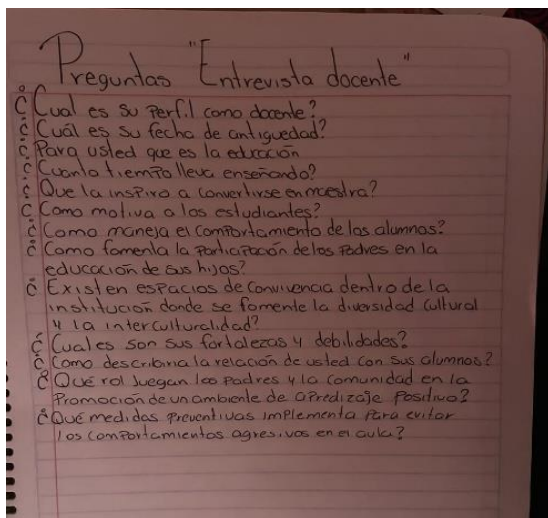 Preguntas "Entrevista docente"
¿Cual es su Perfil como docente?
¿Cuál es su fecha de antiguedad?
¿Para usted que es la educación
¿Cuanto tiempo lleva enseñando?
¿Que la inspiro a convertirse en maestra?
¿Como motiva a los estudiantes?
¿Como maneja el comportamiento de los alumnos?
¿Como fomenta la Participación de los Padres en la
educación de sus hijos?
¿Existen espacios de convivencia dentro de la
institución donde se fomente la diversidad cultural
y la interculturalidad?
¿Cuales son sus fortalezas y debilidades?
¿Como describiria la relación de usted con sus alumnos?
¿Qué rol juegan los padres y la comunidad en la
Promoción de un ambiente de apredizaje Positivo?
¿Qué medidas preventivas implementa para evitar
los comportamientos agresivos en el aula?